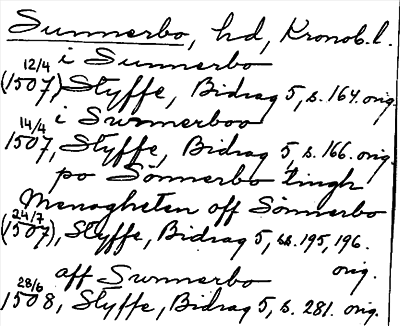 Sunnerbo, hd, Kronob. l.
i Sunnerbo
12/4
(1507) Styffe, Bidrag 5, s. 164. orig.
i Sunnerboo
14/4
1507, Styffe, Bidrag 5, s. 166. orig.
po Sönnerbo tingh
Menagheten off Sönnerbo
24/7
(1507), Styffe, Bidrag 5, ss. 195, 196.
orig.
aff Sunnerbo
28/6
1508, Styffe, Bidrag 5, s. 281. orig.